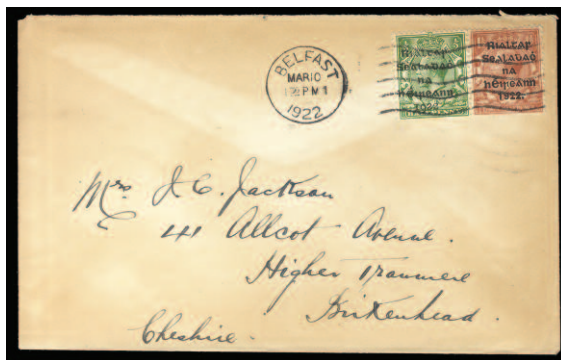 BELFAST
MAR 10
PM
1922
Rialtar
Sealadaċ
na
hÉireann
1922
Rialtar
Sealadaċ
na
hÉireann
1922.
Mrs J. C. Jackson
41 Allcot Avenue.
Higher Tranmere
Birkenhead.
Cheshire.